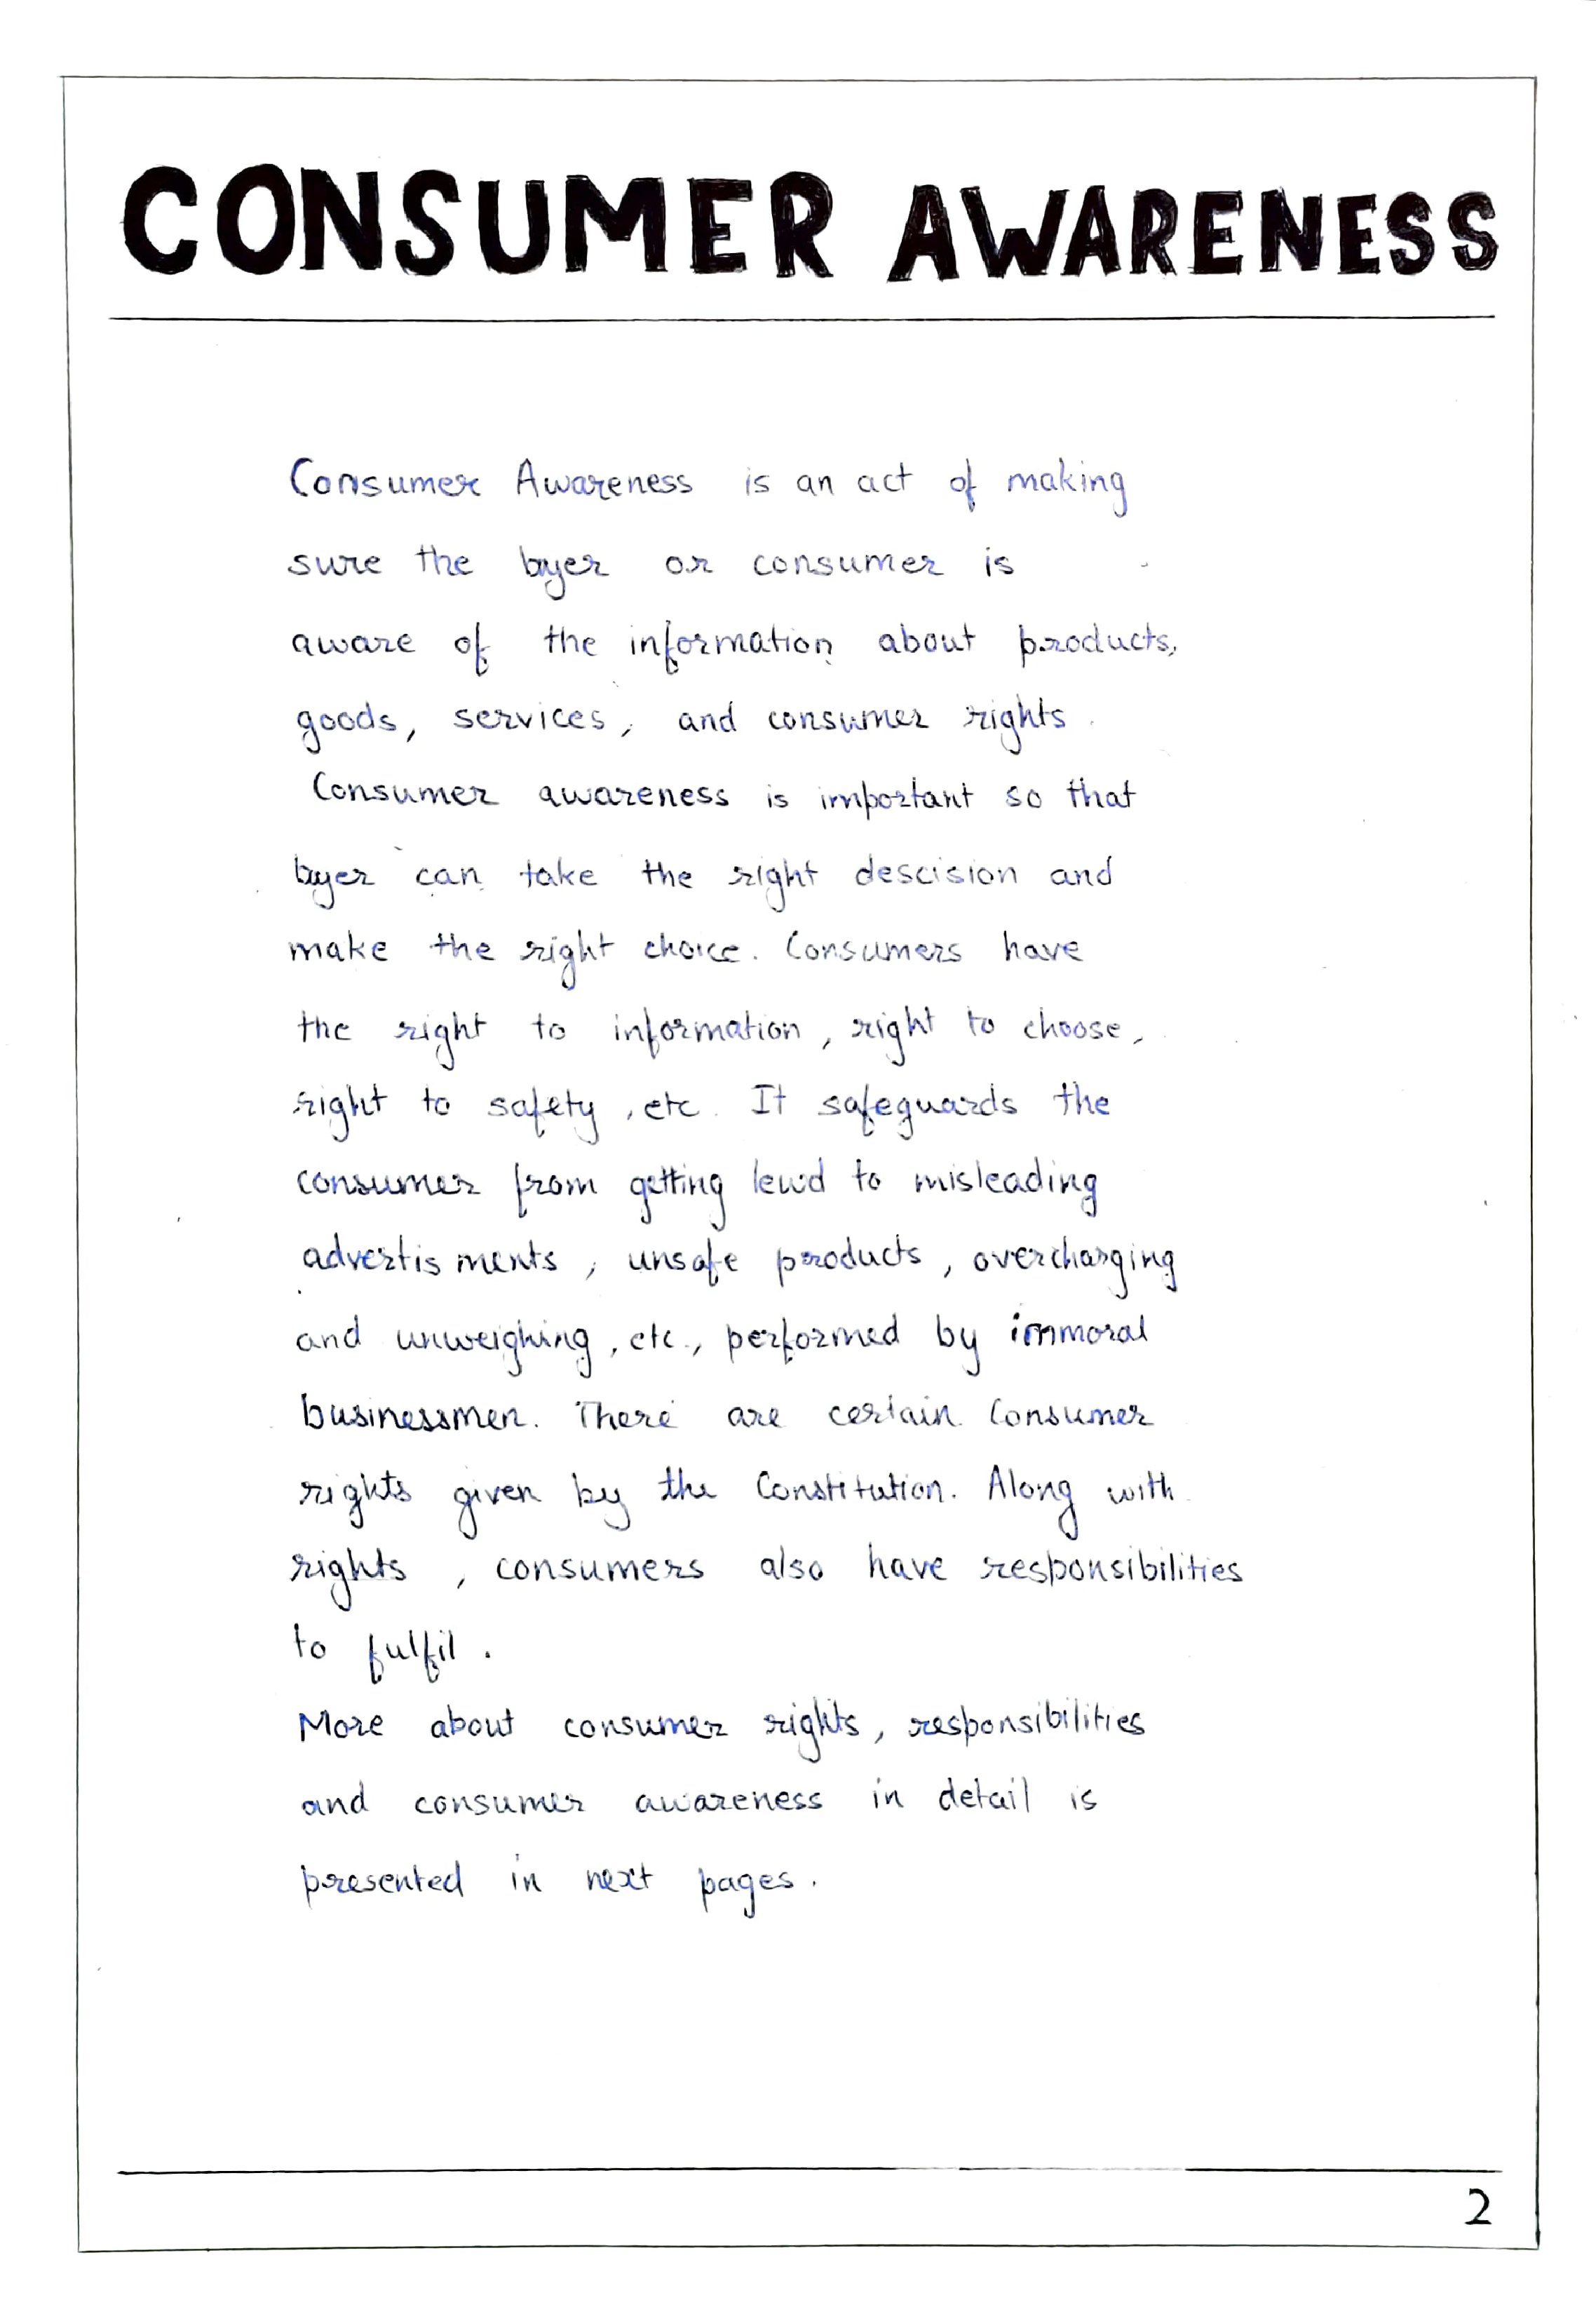 CONSUMER AWARENESS
Consumer Awareness is an act of making
sure the byer or consumer is
aware of the information about products,
goods, services, and consumer rights.
Consumer awareness is important so that
byer can take the right descision and
make the right choice. Consumers have
the right to information, right to choose,
right to safety, etc. It safeguards the
consumer from getting lewd to misleading
advertisments, unsafe products, overcharging
and unweighing, etc., performed by immoral
businessmen. There are certain Consumer
rights given by the Constitution. Along with
rights, consumers also have responsibilities
to fulfil.
More about consumer rights, responsibilities
and consumer awareness in detail is
presented in next pages.
2